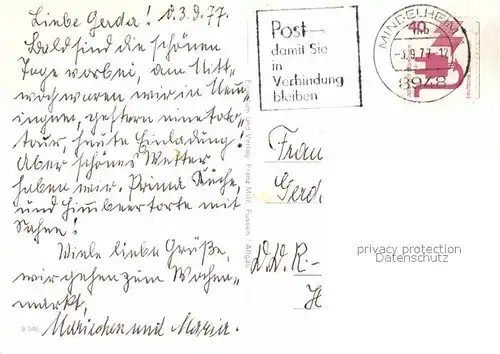 Liebe Gerda! d. 3.9.77.
Bald sind die schönen
Tage vorbei, am Mitt-
woch waren wir in Meu
ingen, gestern eine Foto-
tour, heute Einladung!
Aber schönes Wetter
haben wir. Prima Küche,
und Himbeertorte mit
Sahne!
Viele liebe Grüße,
wir gehen zum Wochen-
markt,
Mariechen und Maria.
9-546
Verlag Franz Milz, Füssen / Allgäu
Post –
damit Sie
in
Verbindung
bleiben
MINDELHEIM 1
-3.9.77.-12
8948
40
Frau
Gerd
D.D.R.-
privacy protection
Datenschutz